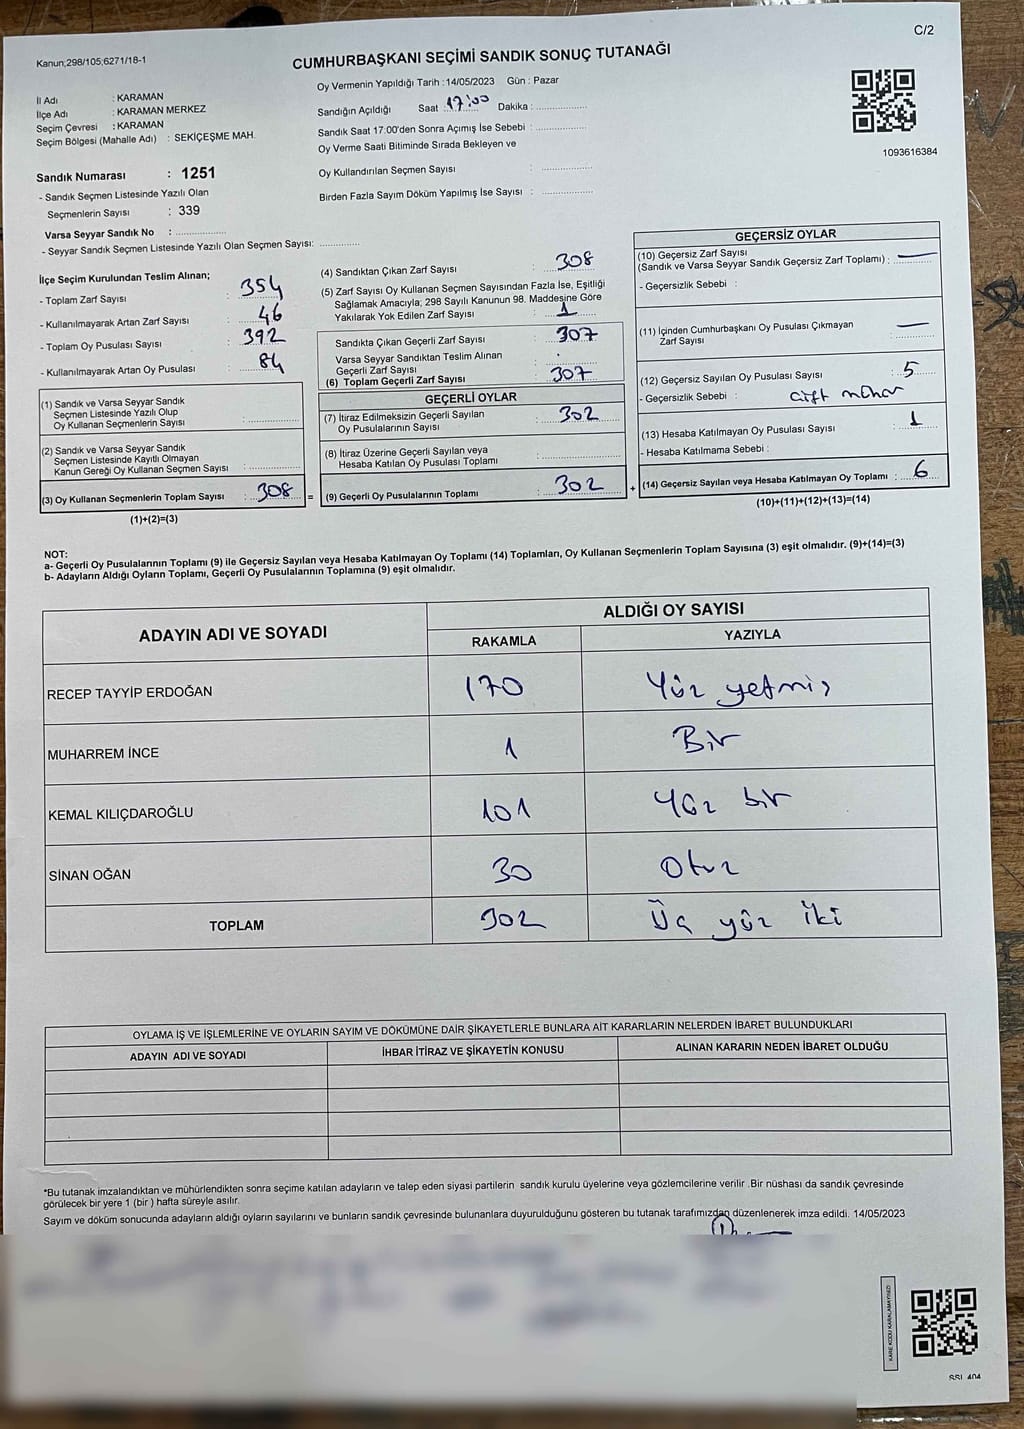 C/2
Kanun;298/105;6271/18-1
CUMHURBAŞKANI SEÇİMİ SANDIK SONUÇ TUTANAĞI
Oy Vermenin Yapıldığı Tarih : 14/05/2023 Gün : Pazar
İl Adı : KARAMAN
İlçe Adı : KARAMAN MERKEZ
Seçim Çevresi : KARAMAN
Seçim Bölgesi (Mahalle Adı) : SEKİÇEŞME MAH.
Sandığın Açıldığı Saat : 17:00 Dakika :
Sandık Saat 17:00'den Sonra Açımış İse Sebebi :
Oy Verme Saati Bitiminde Sırada Bekleyen ve
Oy Kullandırılan Seçmen Sayısı :
Birden Fazla Sayım Döküm Yapılmış İse Sayısı :
1093616384
Sandık Numarası : 1251
- Sandık Seçmen Listesinde Yazılı Olan
Seçmenlerin Sayısı : 339
Varsa Seyyar Sandık No :
- Seyyar Sandık Seçmen Listesinde Yazılı Olan Seçmen Sayısı:
İlçe Seçim Kurulundan Teslim Alınan;
- Toplam Zarf Sayısı : 354
- Kullanılmayarak Artan Zarf Sayısı : 46
- Toplam Oy Pusulası Sayısı : 392
- Kullanılmayarak Artan Oy Pusulası : 84
(1) Sandık ve Varsa Seyyar Sandık
Seçmen Listesinde Yazılı Olup
Oy Kullanan Seçmenlerin Sayısı :
(2) Sandık ve Varsa Seyyar Sandık
Seçmen Listesinde Kayıtlı Olmayan
Kanun Gereği Oy Kullanan Seçmen Sayısı :
(3) Oy Kullanan Seçmenlerin Toplam Sayısı : 308 =
(1)+(2)=(3)
(4) Sandıktan Çıkan Zarf Sayısı : 308
(5) Zarf Sayısı Oy Kullanan Seçmen Sayısından Fazla İse, Eşitliği
Sağlamak Amacıyla; 298 Sayılı Kanunun 98. Maddesine Göre
Yakılarak Yok Edilen Zarf Sayısı : 1
Sandıkta Çıkan Geçerli Zarf Sayısı : 307
Varsa Seyyar Sandıktan Teslim Alınan
Geçerli Zarf Sayısı :
(6) Toplam Geçerli Zarf Sayısı : 307
GEÇERLİ OYLAR
(7) İtiraz Edilmeksizin Geçerli Sayılan
Oy Pusulalarının Sayısı : 302
(8) İtiraz Üzerine Geçerli Sayılan veya
Hesaba Katılan Oy Pusulası Toplamı :
(9) Geçerli Oy Pusulalarının Toplamı : 302 +
GEÇERSİZ OYLAR
(10) Geçersiz Zarf Sayısı
(Sandık ve Varsa Seyyar Sandık Geçersiz Zarf Toplamı) : —
- Geçersizlik Sebebi :
(11) İçinden Cumhurbaşkanı Oy Pusulası Çıkmayan
Zarf Sayısı : —
(12) Geçersiz Sayılan Oy Pusulası Sayısı : 5
- Geçersizlik Sebebi : çift mühür
(13) Hesaba Katılmayan Oy Pusulası Sayısı : 1
- Hesaba Katılmama Sebebi :
(14) Geçersiz Sayılan veya Hesaba Katılmayan Oy Toplamı : 6
(10)+(11)+(12)+(13)=(14)
NOT:
a- Geçerli Oy Pusulalarının Toplamı (9) ile Geçersiz Sayılan veya Hesaba Katılmayan Oy Toplamı (14) Toplamları, Oy Kullanan Seçmenlerin Toplam Sayısına (3) eşit olmalıdır. (9)+(14)=(3)
b- Adayların Aldığı Oyların Toplamı, Geçerli Oy Pusulalarının Toplamına (9) eşit olmalıdır.
ADAYIN ADI VE SOYADI ALDIĞI OY SAYISI
RAKAMLA YAZIYLA
RECEP TAYYİP ERDOĞAN 170 Yüz yetmiş
MUHARREM İNCE 1 Bir
KEMAL KILIÇDAROĞLU 101 Yüz bir
SİNAN OĞAN 30 Otuz
TOPLAM 302 Üç yüz iki
OYLAMA İŞ VE İŞLEMLERİNE VE OYLARIN SAYIM VE DÖKÜMÜNE DAİR ŞİKAYETLERLE BUNLARA AİT KARARLARIN NELERDEN İBARET BULUNDUKLARI
ADAYIN ADI VE SOYADI İHBAR İTİRAZ VE ŞİKAYETİN KONUSU ALINAN KARARIN NEDEN İBARET OLDUĞU
*Bu tutanak imzalandıktan ve mühürlendikten sonra seçime katılan adayların ve talep eden siyasi partilerin sandık kurulu üyelerine veya gözlemcilerine verilir .Bir nüshası da sandık çevresinde
görülecek bir yere 1 (bir ) hafta süreyle asılır.
Sayım ve döküm sonucunda adayların aldığı oyların sayılarını ve bunların sandık çevresinde bulunanlara duyurulduğunu gösteren bu tutanak tarafımızdan düzenlenerek imza edildi. 14/05/2023
KARE KODU KARALAMAYINIZ!